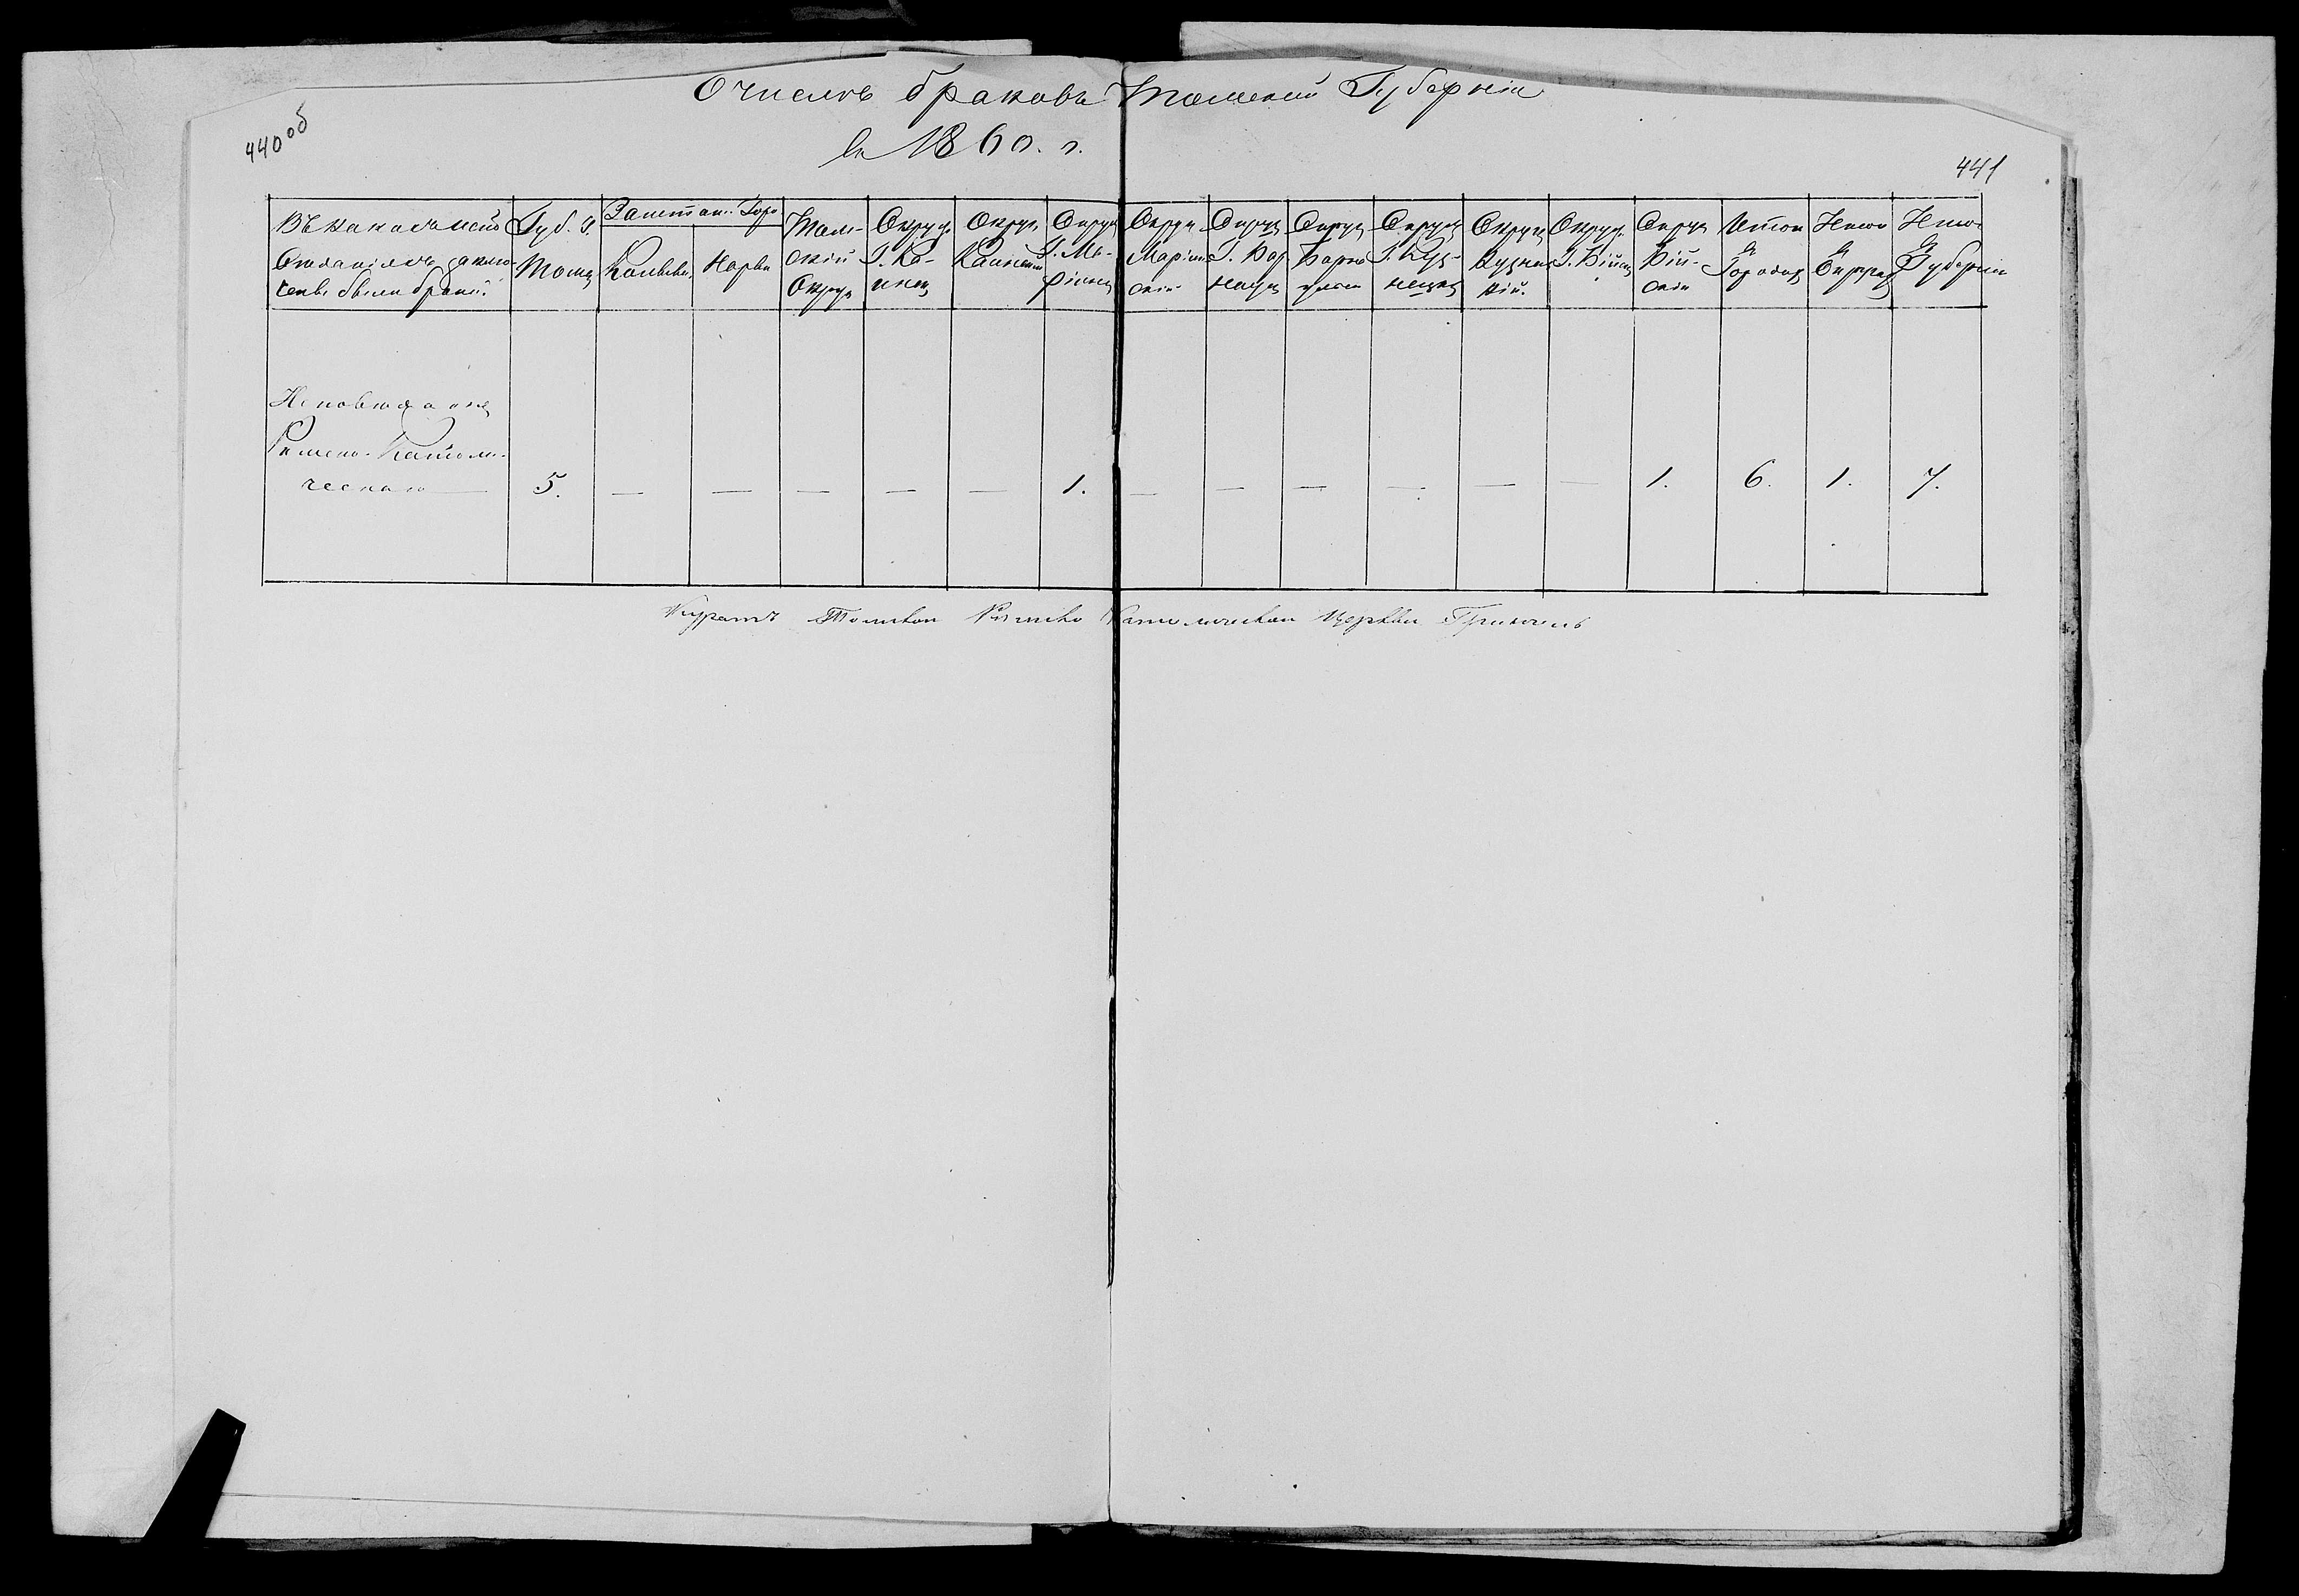 О числѣ браковъ Томской Губерніи
въ 1860. г.
440об
441
Въ какомъ
Губ. г. Томск
Заштат. Горо
Колыв.
Нары
Томскій Округ
Округ. Г. Ка-инск
Округ. Каинскій
Округ Г. Ма-ріинск
Округ Маріинскій
Округ Г. Бар наул
Округ Барнаульскій
Округ Г. Куз-нецкъ
Округ Кузнецкій.
Округ. Г. Бійск
Округ Бій-скій
Итого въ Городах
Итого въ Округах
Итого въ Губерніи
Исповѣданія
Римско-Католи-
ческаго
5. — — — — — 1. — — — — — — 1. 6. 1. 7.
Куратъ Томской Римско Католической Церкви